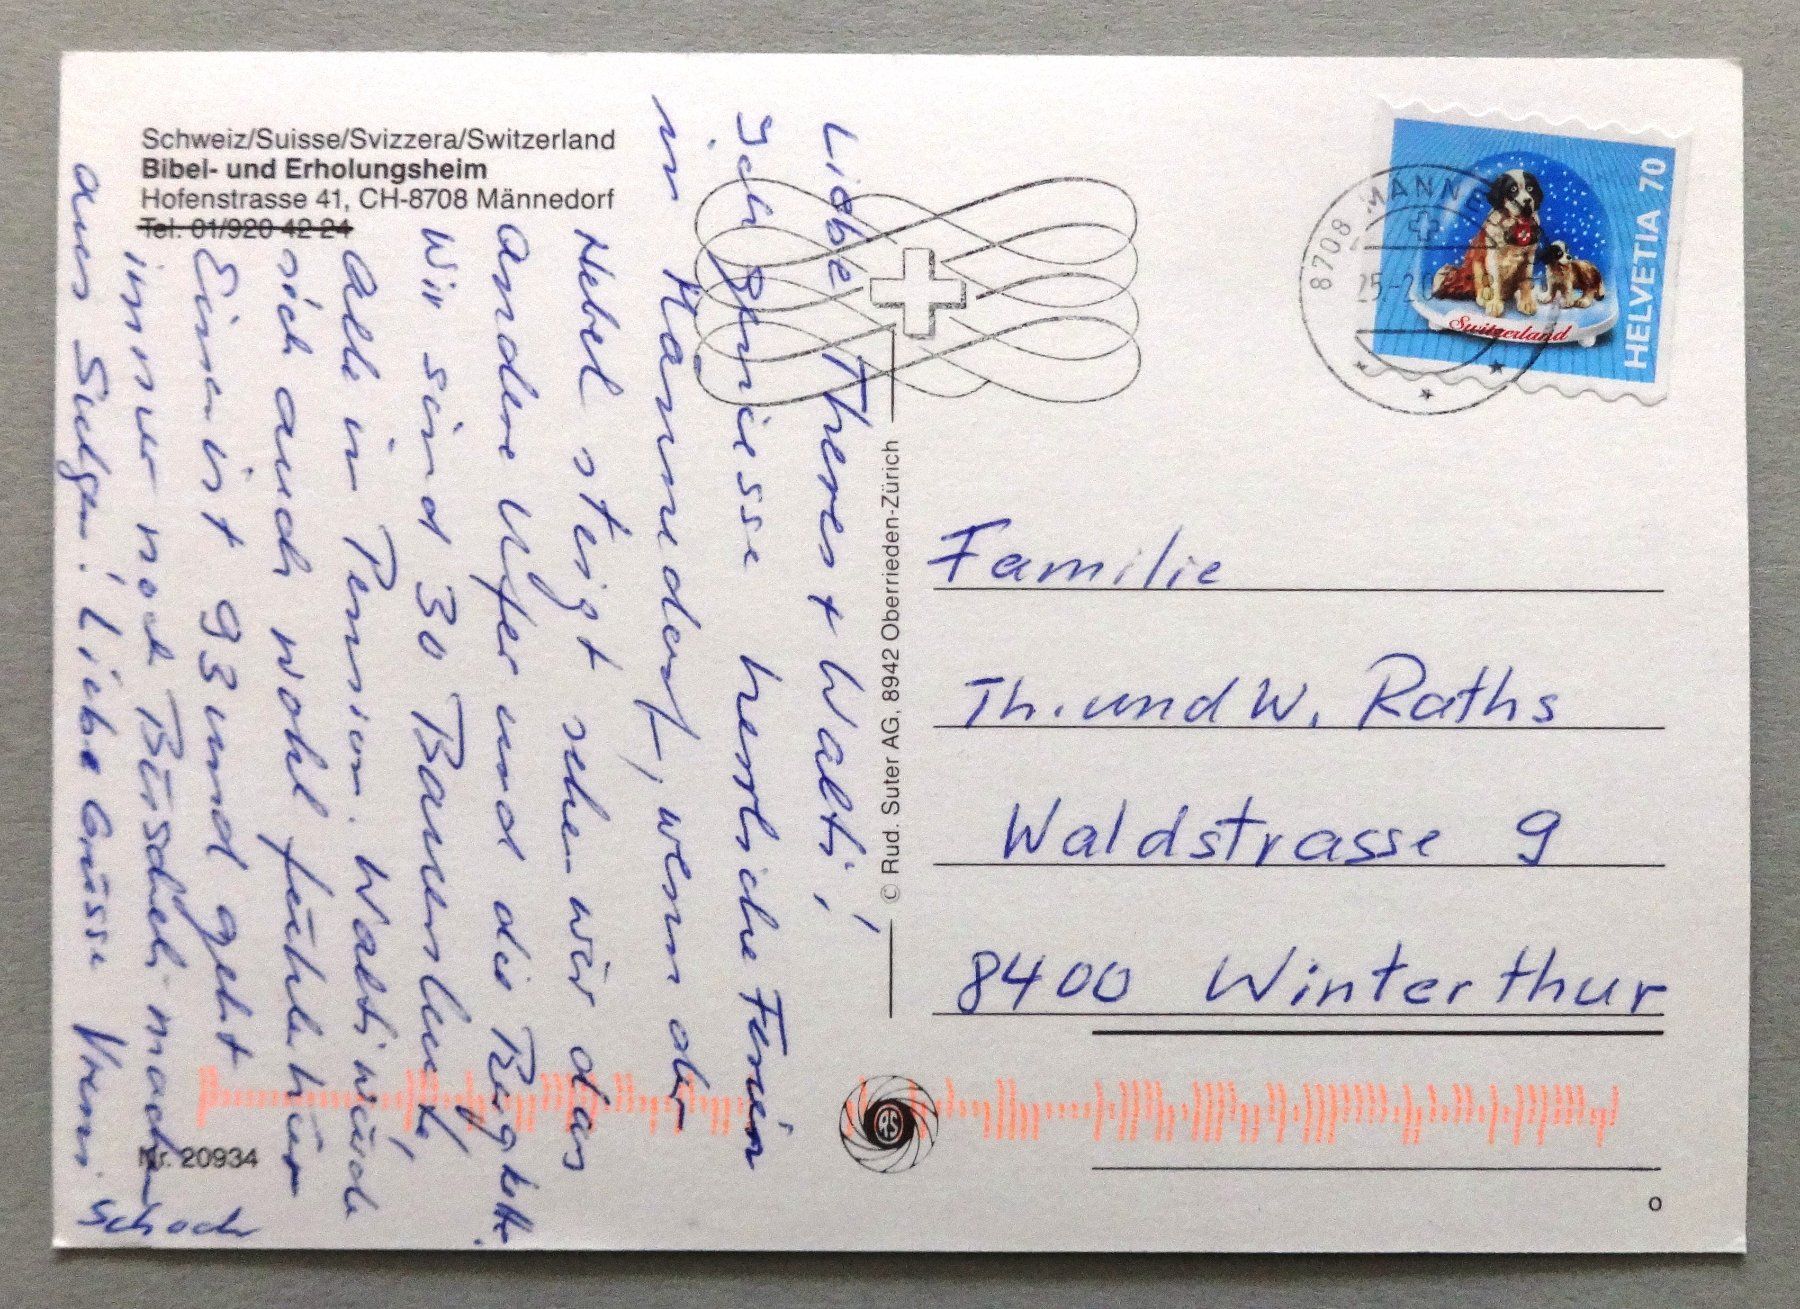 Schweiz/Suisse/Svizzera/Switzerland
Bibel- und Erholungsheim
Hofenstrasse 41, CH-8708 Männedorf
Tel. 01/920 42 24
Liebe Theres + Walti,
Ich geniesse herrliche Ferien
in Männedorf, wenn der
Nebel steigt sehen wir das
andere Ufer und die Rigikette.
Wir sind 30 Bauersleute,
alle in Pension. Walti würde
sich auch wohl fühlen hier
Einer ist 93 und geht
immer noch Büscheli machen
aus Sulgen! Liebe Grüsse Vreni
Schoch
Nr. 20934
© Rud. Suter AG, 8942 Oberrieden-Zürich
RS
8708 MÄNNE
25.-2.0
HELVETIA 70
Switzerland
Familie
Th. und W. Raths
Waldstrasse 9
8400 Winterthur
O